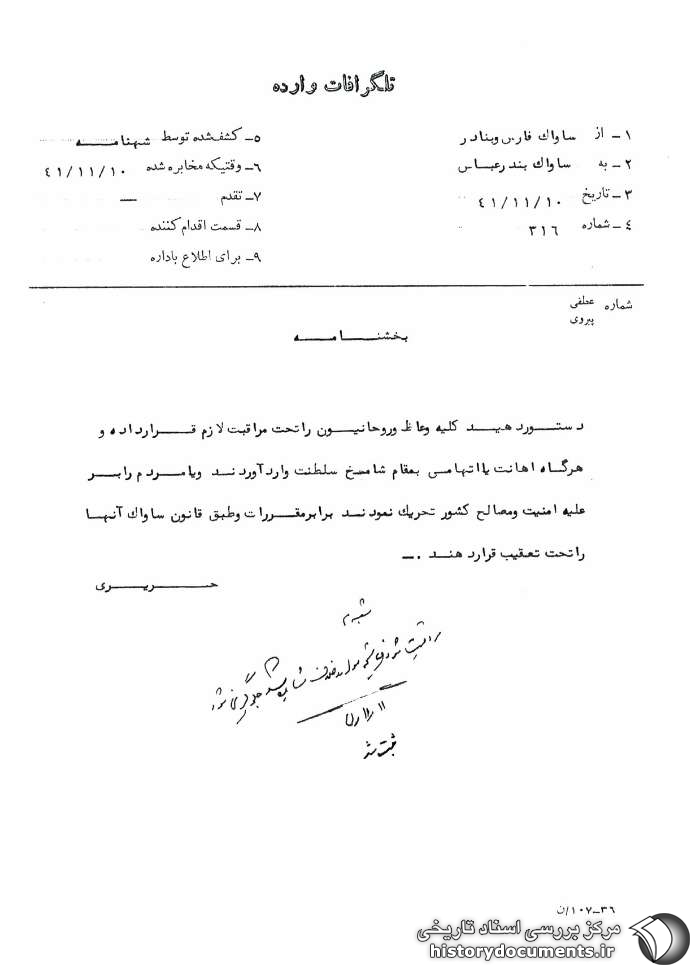 تلگرافات وارده
۱ـ از ساواك فارس وبنادر
۲ـ به ساواك بندرعباس
۳ـ تاریخ ۴۱/۱۱/۱۰
۴ـ شماره ۳۱۶
۵ـ کشف‌شده توسط شهنامه
۶ـ وقتیکه مخابره شده ۴۱/۱۱/۱۰
۷ـ تقدم —
۸ـ قسمت اقدام کننده
۹ـ برای اطلاع باداره
شماره عطفی
پیروی
بخشنامه
دستوردهید کلیه وعاظ وروحانیون راتحت مراقبت لازم قرارداده و
هرگاه اهانت یااتهامی بمقام شامخ سلطنت واردآوردند ویامردم رابر
علیه امنیت ومصالح کشور تحریك نمودند برابرمقررات وطبق قانون ساواك آنها
راتحت تعقیب قراردهند .ـ
حریری
شعبه ۲
مراقبت شود
شود
ثبت شد
۳۶ـ۱۰۷/ن
مرکز بررسی اسناد تاریخی
historydocuments.ir